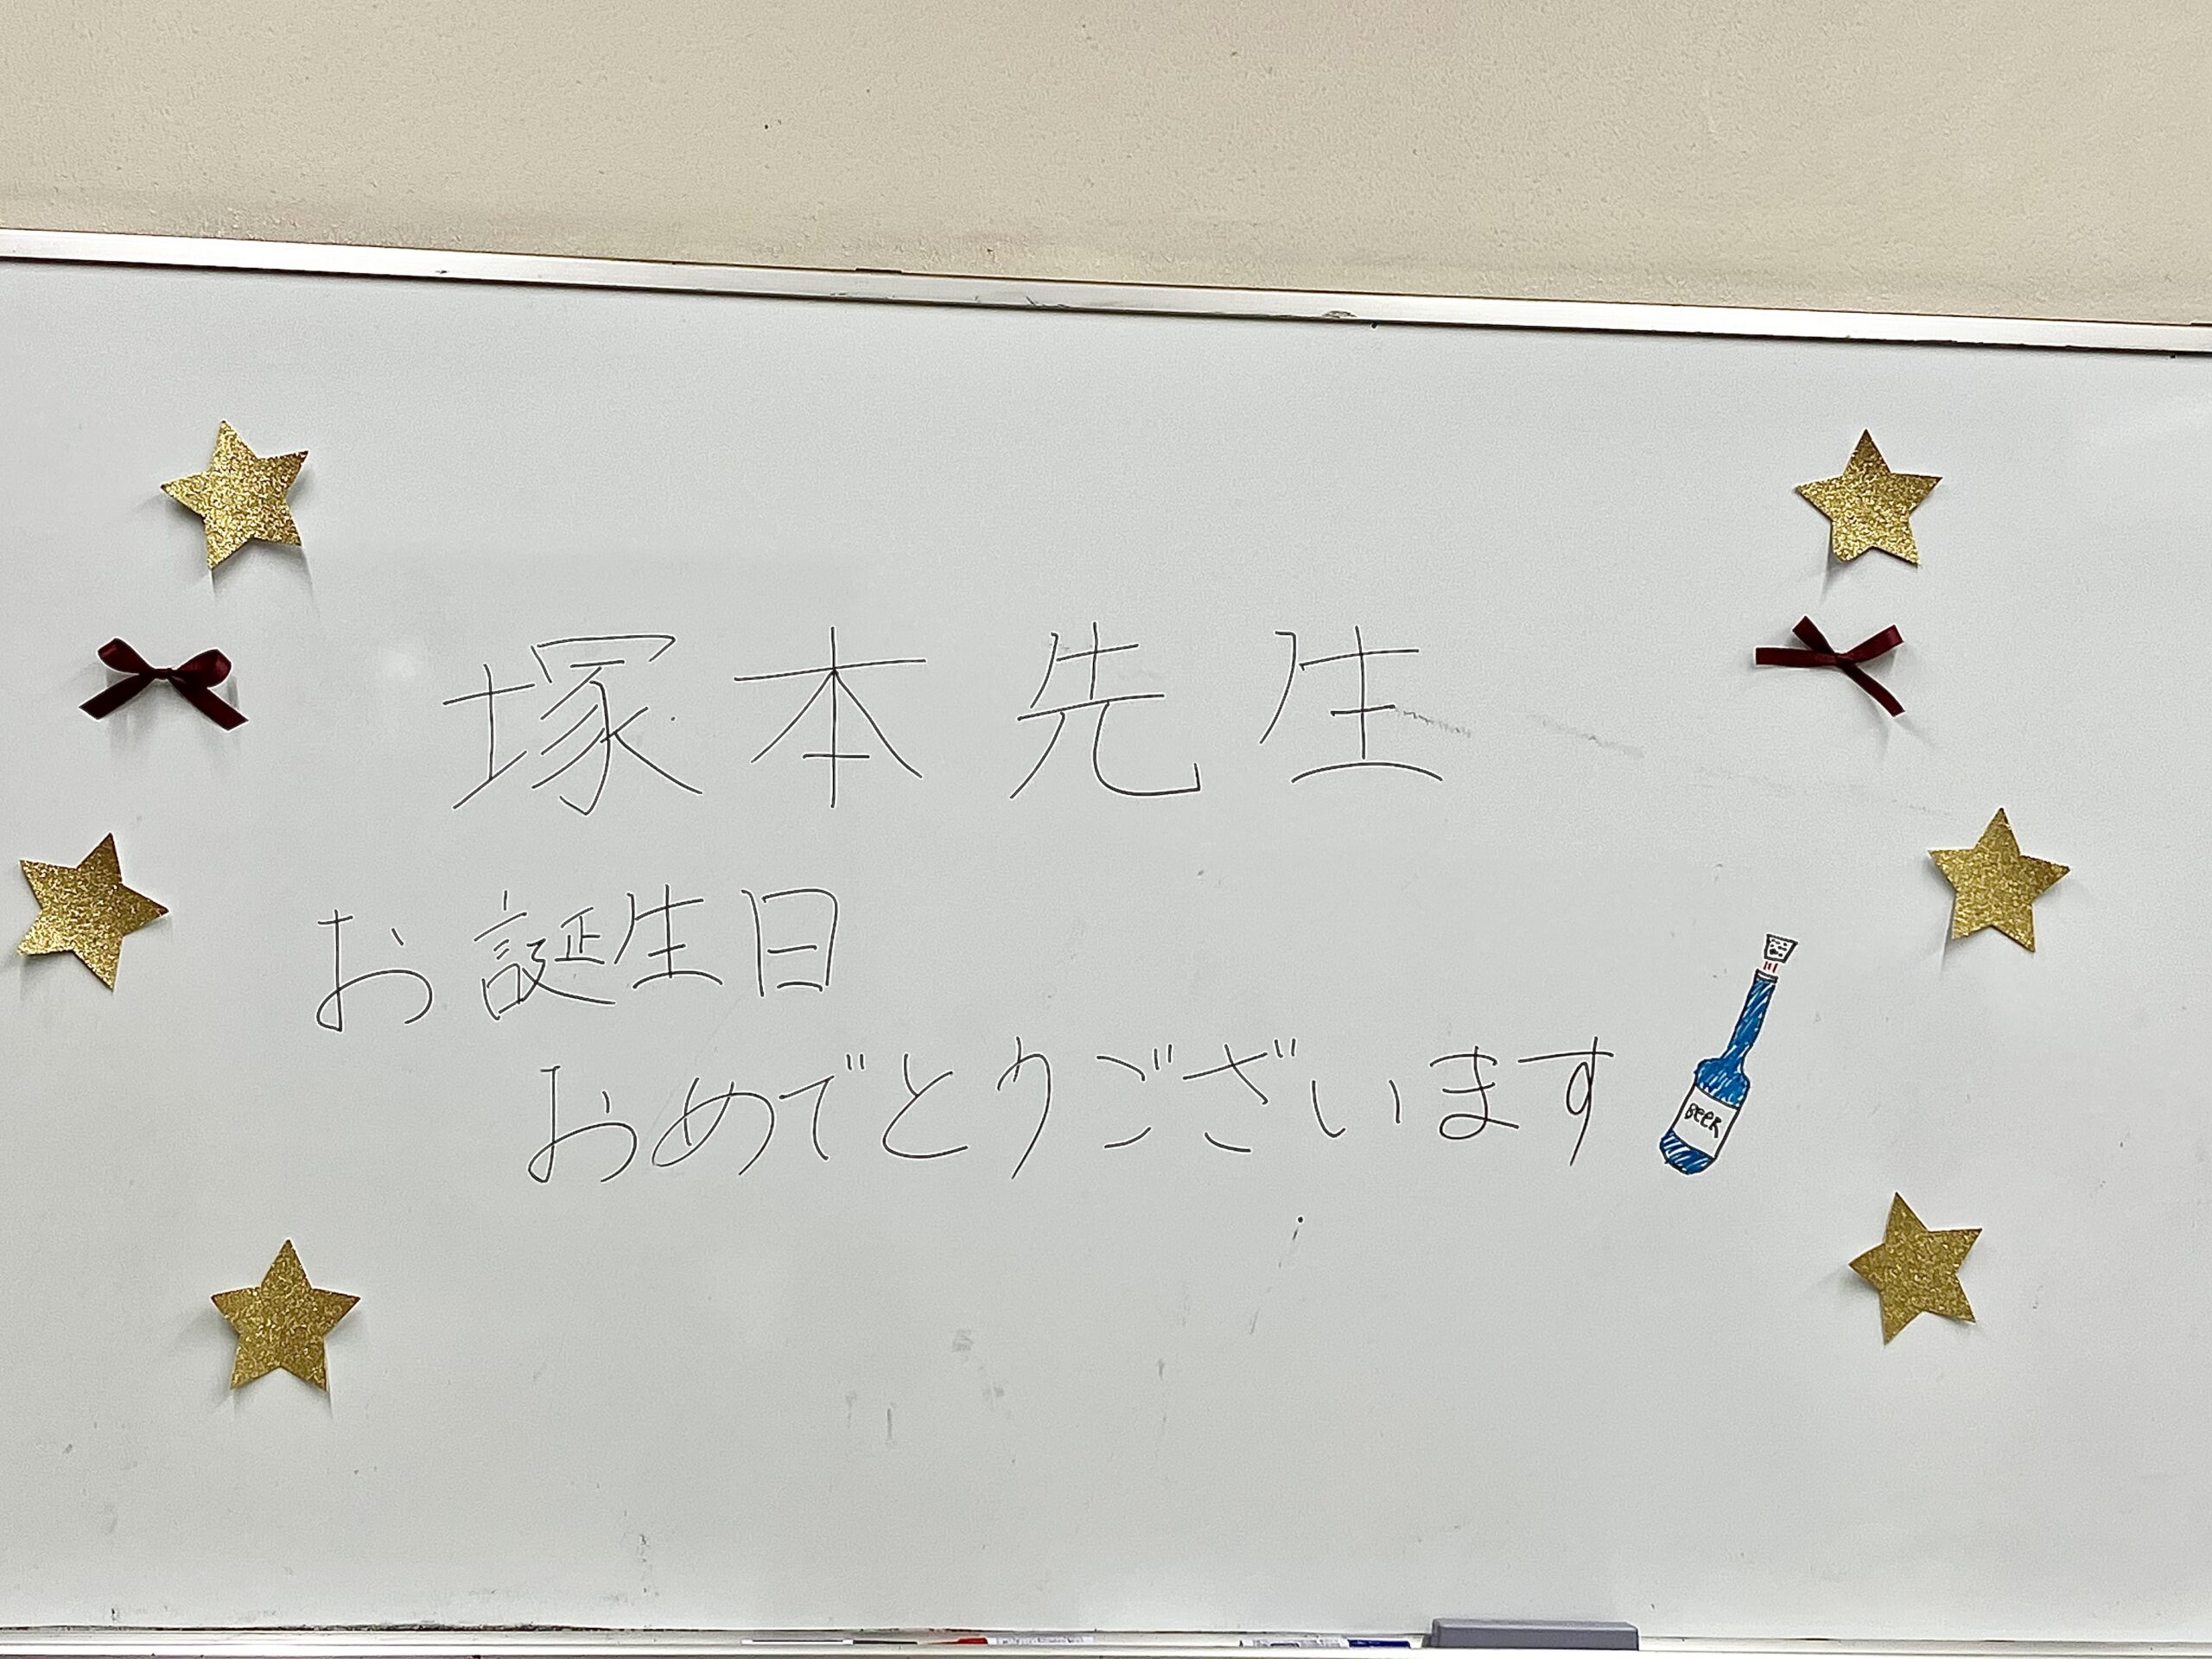 塚本先生
お誕生日
おめでとうございます
BEER